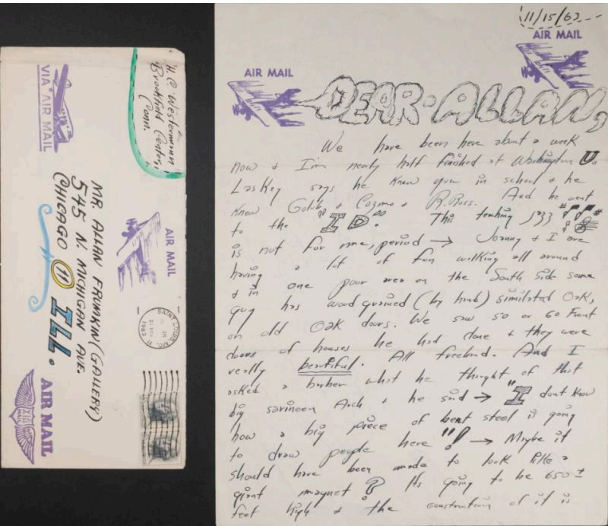 H.C. Westermann
Brookfield Center,
Conn.
VIA AIR MAIL
AIR MAIL
MR. ALLAN FRUMKIN (GALLERY)
545 N. MICHIGAN AVE.
CHICAGO 11 ILL.
AIR MAIL
SAINT LOUIS, MO.
11/15/63
AIR MAIL
AIR MAIL
DEAR ALLAN,
We have been here about a week
now + I'm nearly half finished at Washington U.
Laskey says he knew you in school + he
knew Golub + Cozmo + And he went
to the "ID" This teaching
is not for me, period → Joanny + I are
having a lot of fun walking all around
+ in one poor area on the South side some
guy has wood grained (by hand) simulated Oak,
on old Oak doors. We saw 50 or 60 front
doors of houses he had done + they were
really beautiful. All freehand. And I
asked a barber what he thought of that
big Sarineen Arch + he said → "I dont know
how a big piece of bent steel is going
to draw people here"! → Maybe it
should have been made to look like a
giant magnet? Its going to be 650±
feet high + the construction of it is